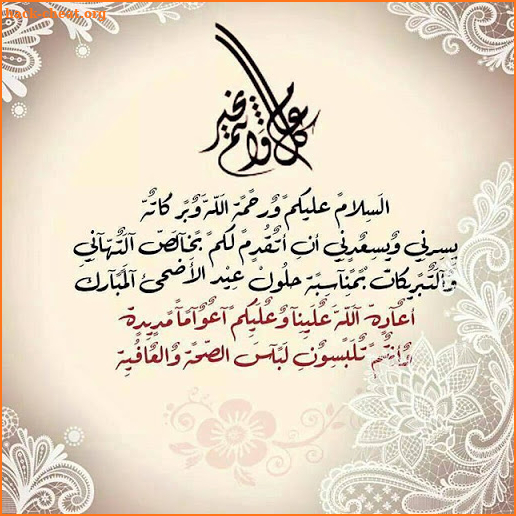 hackcheat.org
كل عام وانتم بخير
السلام عليكم ورحمة الله وبركاته
يسرني ويسعدني أن أتقدم لكم بخالص التهاني
والتبريكات بمناسبة حلول عيد الأضحى المبارك
أعاده الله علينا وعليكم أعواماً مديدة
وأنتم تلبسون لباس الصحة والعافية